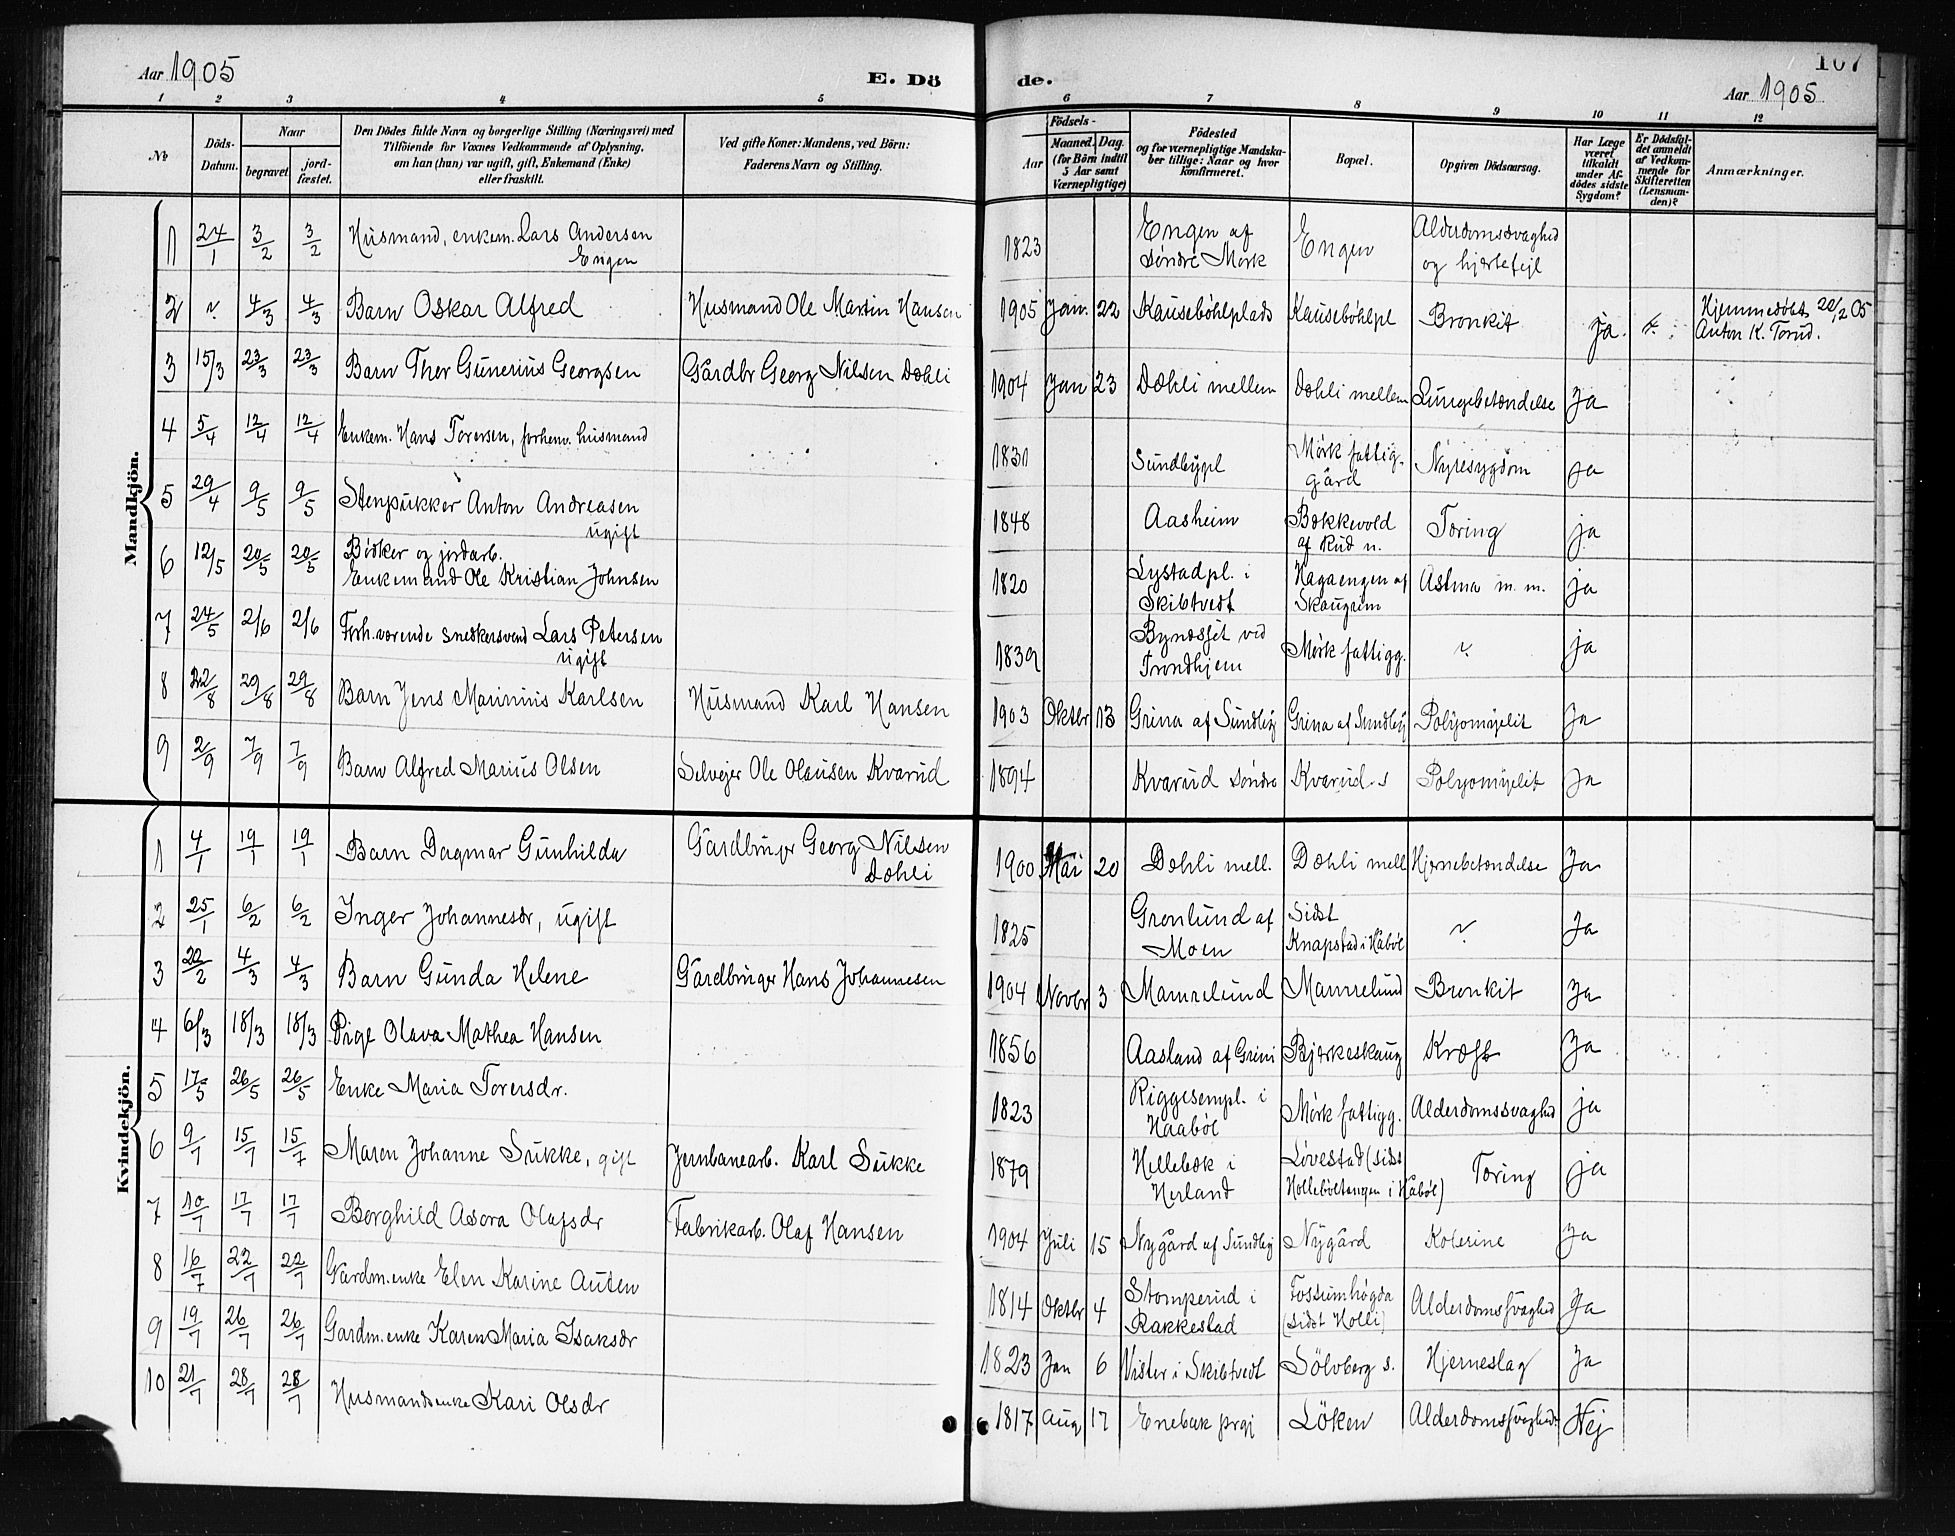 Aar 1905
E. Dö
de.
107
Aar 1905
1 2 3 4 5 6 7 8 9 10 11 12
No
Döds-Datum.
Naar
begravet
jordfæstet.
Den Dödes fulde Navn og borgerlige Stilling (Næringsvei) med
Tilföiende for Voxnes Vedkommende af Oplysning,
om han (hun) var ugift, gift, Enkemand (Enke)
eller fraskilt.
Ved gifte Koner: Mandens, ved Börn:
Faderens Navn og Stilling.
Födsels-
Aar
Maaned. Dag.
(for Börn indtil
5 Aar samt
Værnepligtige)
Födested
og for værnepligtige Mandska-
ber tillige: Naar og hvor
konfirmeret.
Bopæl.
Opgiven Dödsaarsag.
Har Læge
været
tilkaldt
under Af-
dödes sidste
Sygdom?
Er Dödsfal-
det anmeldt
af Vedkom-
mende for
Skifteretten
(Lensman-
den)?
Anmærkninger.
Mandkjön.
1 24/1 3/2 3/2 Husmand, enkem. Lars Andersen
Engen
1823 Engen af
søndre Mørk Engen Alderdomssvaghed
og hjertefejl
2 " 4/3 4/3 Barn Oskar Alfred Husmand Ole Martin Hansen 1905 Jan. 22 Kausebøhlplads Kausebøhlpl Bronkit ja.
Hjemmedøbt 20/2 05
Anton K. Torud.
3 15/3 23/3 23/3 Barn Thor Gunerius Georgsen Gårdbr Georg Nilsen Dæhli 1904 Jan 23 Dæhli mellem Dæhli mellem Lungebetændelse Ja
4 5/4 12/4 12/4 Enkem. Hans Torersen, forhenv. husmand 1831 Sundbypl Mørk fattig-
gård Nyresygdom ja
5 29/4 9/5 9/5 Stenpukker Anton Andreasen
ugift
1848 Aasheim Bækkevold
af Rud n. Tæring ja
6 12/5 20/5 20/5 Bødker og jordarb.
Enkemand Ole Kristian Johnsen
1820 Lystadpl. i
Skibtvedt Hagaengen af
Skaugum Astma m. m. ja
7 24/5 2/6 2/6 Forh.værende snedkersvend Lars Petersen
ugift
1839 Bynæsset ved
Trondhjem Mørk fattigg. " ja
8 22/8 29/8 29/8 Barn Jens Marinius Karlsen Husmand Karl Hansen 1903 Oktbr 13 Grina af Sundby Grina af Sundby Polyomyelit Ja
9 2/9 7/9 7/9 Barn Alfred Marius Olsen Selvejer Ole Olausen Kvarud 1894 Kvarud søndre Kvarud s Polyomyelit Ja
Kvindekjön.
1 4/1 19/1 19/1 Barn Dagmar Gunhilda Gårdbruger Georg Nilsen
Dæhli
1900 Mai 20 Dæhli mell. Dæhli mell Hjernebetændelse Ja
2 25/1 6/2 6/2 Inger Johannesdr, ugift 1825 Grønlund af
Moen Sidst
Knapstad i Håbøl " Ja
3 20/2 4/3 4/3 Barn Gunda Helene Gårdbruger Hans Johannesen 1904 Novbr 3 Mamrelund Mamrelund Bronkit Ja
4 6/3 18/3 18/3 Pige Olava Mathea Hansen 1856 Aasland af Grini Bjerkeskaug Kræft Ja
5 17/5 26/5 26/5 Enke Maria Torersdr. 1823 Riggesempl. i
Haabøl Mørk fattigg. Alderdomssvaghed ja
6 9/7 15/7 15/7 Maren Johanne Sukke, gift Jernbanearb. Karl Sukke 1879 Hellebæk i
Herland Løvestad (sidst
Holleboltangen i Håbøl) Tæring ja
7 10/7 17/7 17/7 Borghild Asora Olafsdr Fabrikarb. Olaf Hansen 1904 Juli 15 Nygård af Sundby Nygård Kolerine Ja
8 16/7 22/7 22/7 Gårdm.enke Elen Karine Auten 1814 Oktbr 4 Stomperud i
Rakkestad Fossumhøgda
(sidst Holli) Alderdomssvaghed Ja
9 19/7 26/7 26/7 Gårdm.enke Karen Maria Isaksdr 1823 Jan 6 Vister i Skibtvedt Sölvberg s. Hjerneslag Ja
10 21/7 28/7 28/7 Husmandsenke Kari Olsdr 1817 Aug 17 Enebak prgj Löken Alderdomssvaghed. Nej